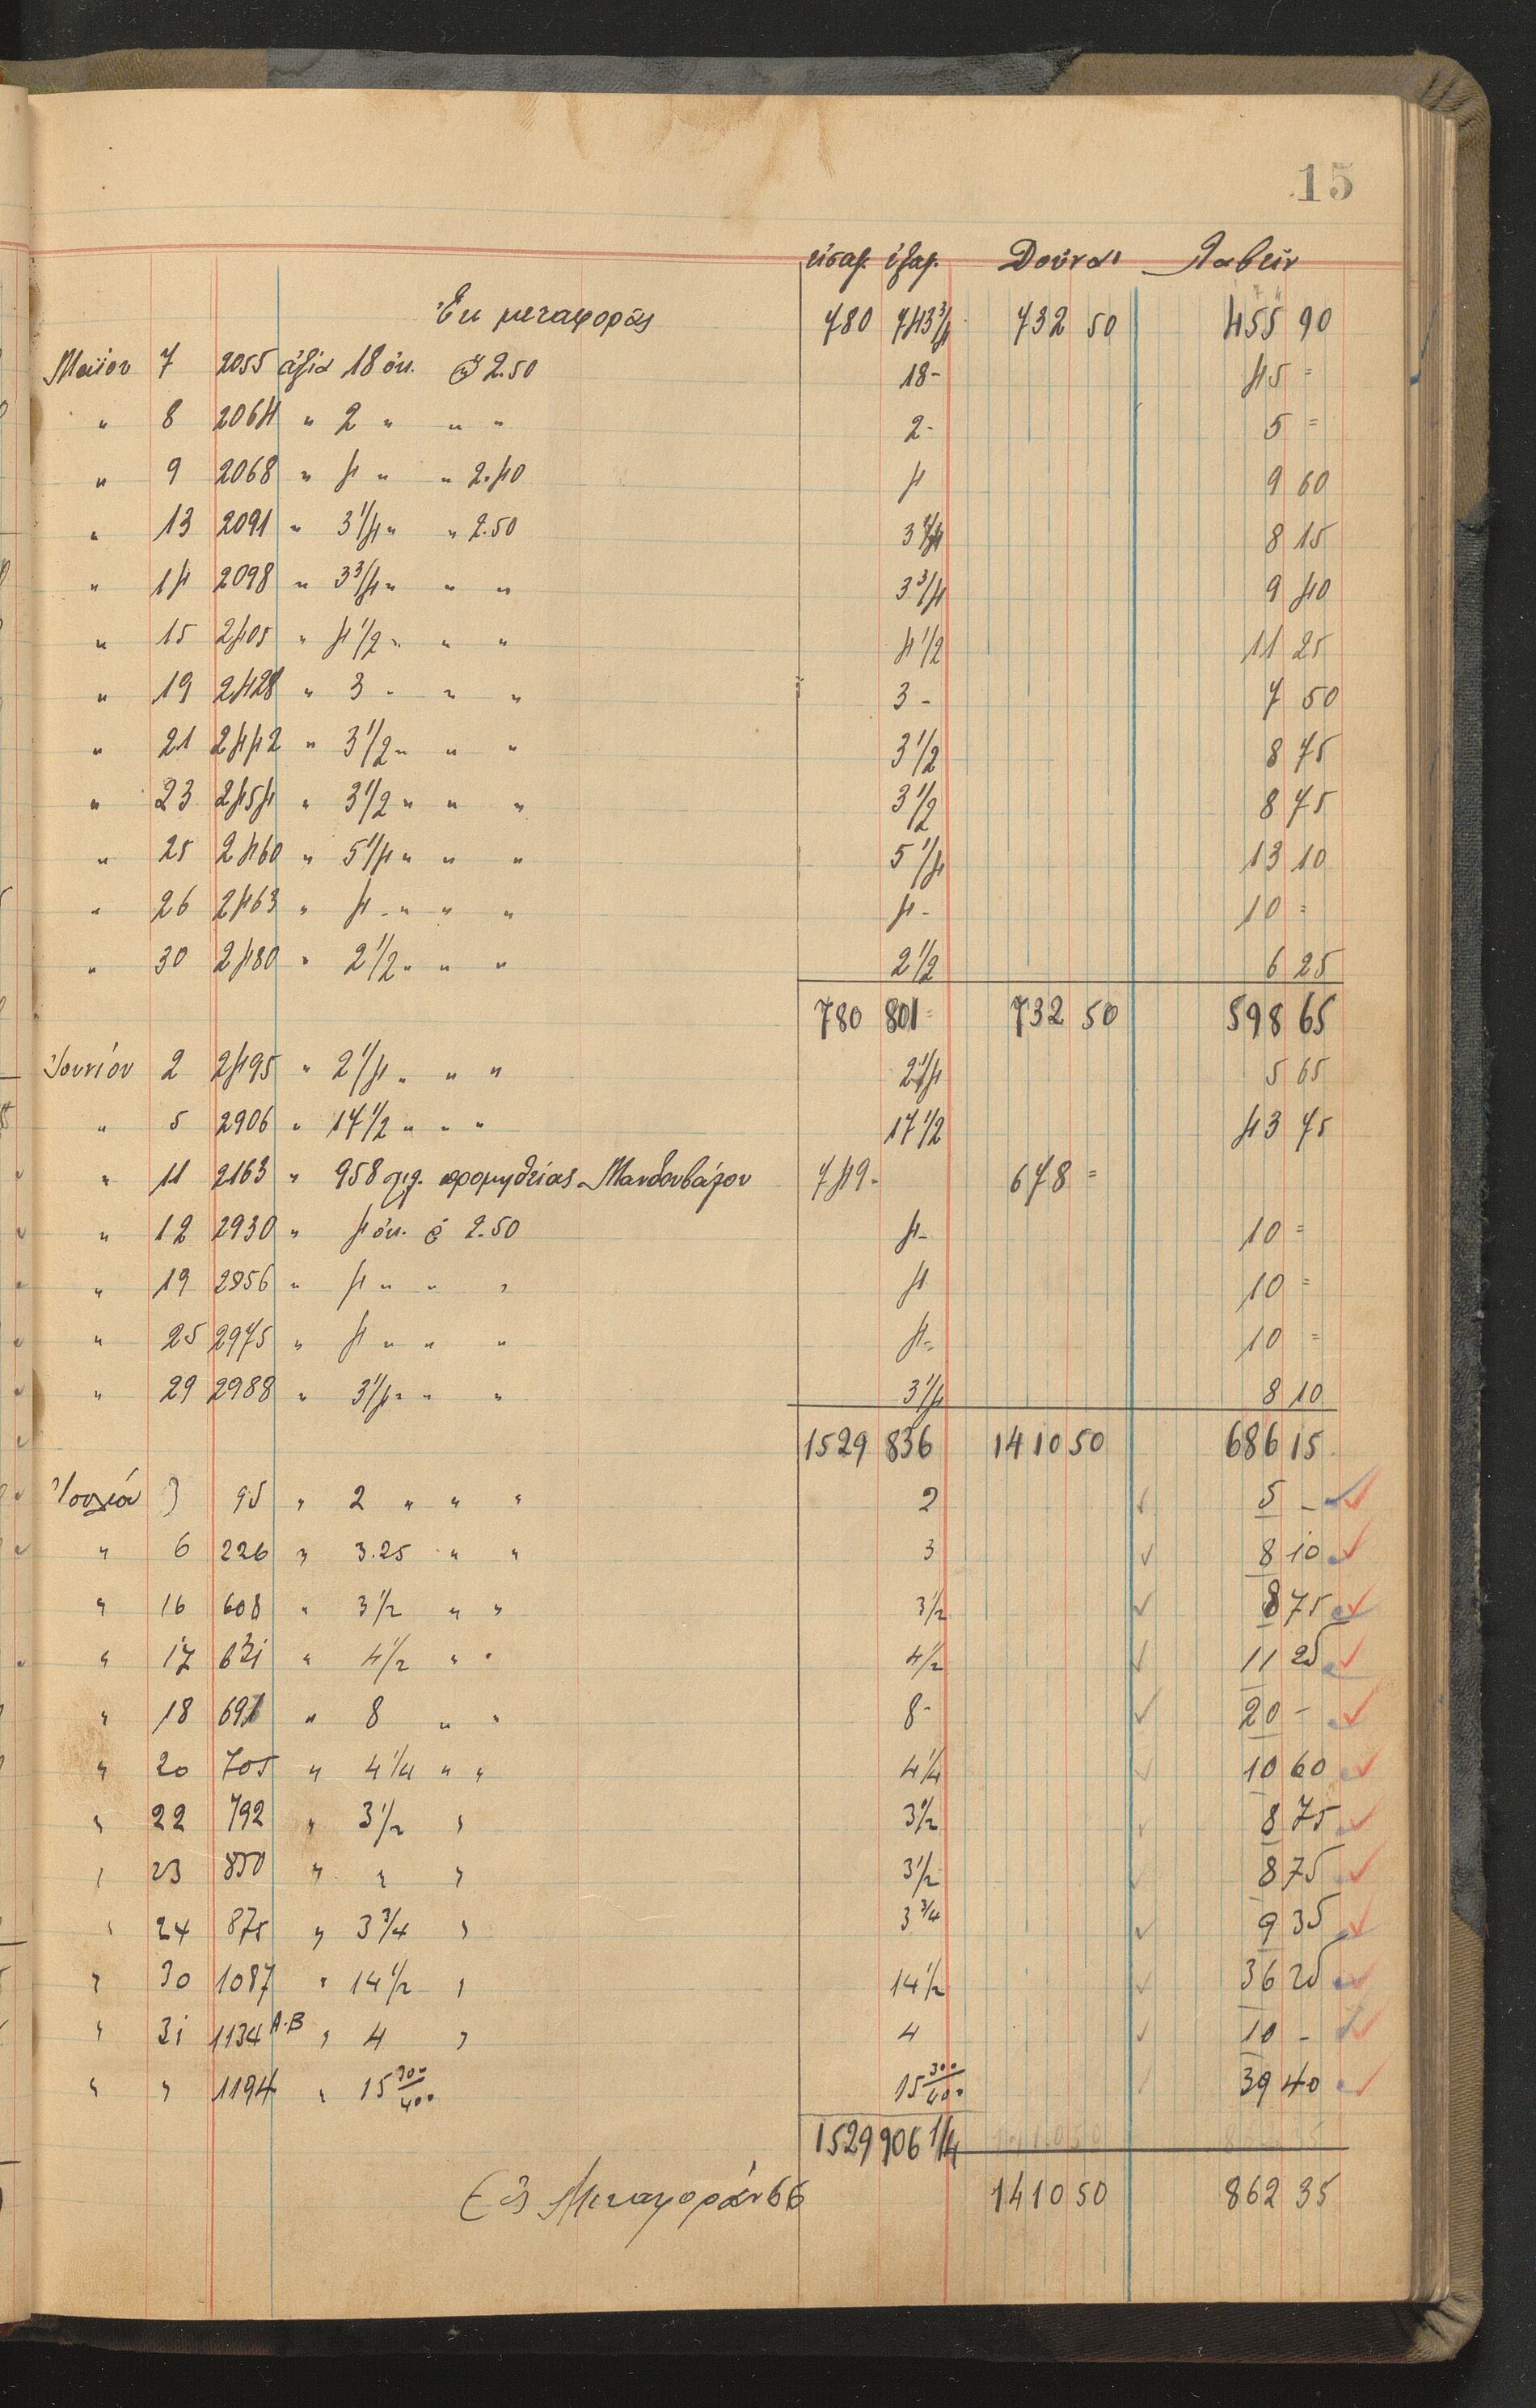 15
εἰσαγ. ἐξαγ. Δοῦναι Λαβεῖν
Ἐκ μεταφορᾶς 780 743 3/4 732 50 455 90
Μαΐου 7 2055 ἀξία 18 ὀκ. @ 2.50 18- 45 =
" 8 2064 " 2 " " " 2- 5 =
" 9 2068 " 4 " " 2.40 4 9 60
" 13 2091 " 3 1/4 " " 2.50 3 1/4 8 15
" 14 2098 " 3 3/4 " " " 3 3/4 9 40
" 15 2405 " 4 1/2 " " " 4 1/2 11 25
" 19 2428 " 3 - " " 3 - 7 50
" 21 2442 " 3 1/2 " " " 3 1/2 8 75
" 23 2454 " 3 1/2 " " " 3 1/2 8 75
" 25 2460 " 5 1/4 " " " 5 1/4 13 10
" 26 2463 " 4 - " " " 4 - 10 =
" 30 2480 " 2 1/2 " " " 2 1/2 6 25
780 801 = 732 50 598 65
Ἰουνίου 2 2495 " 2 1/4 " " " 2 1/4 5 65
" 5 2906 " 17 1/2 " " " 17 1/2 43 75
" 11 2163 " 958 λιτ. προμηθείας Μανδουβάλου 749 - 678 =
" 12 2930 " 4 ὀκ. @ 2.50 4 - 10 =
" 19 2956 " 4 " " " 4 10 =
" 25 2975 " 4 " " " 4 - 10 =
" 29 2988 " 3 1/4 " " " 3 1/4 8 10
1529 836 1410 50 686 15
Ἰουλίου 3 95 " 2 " " " 2 5 -
" 6 226 " 3.25 " " 3 8 10
" 16 608 " 3 1/2 " " 3 1/2 8 75
" 17 631 " 4 1/2 " " 4 1/2 11 25
" 18 691 " 8 " " 8 - 20 -
" 20 705 " 4 1/4 " " 4 1/4 10 60
" 22 792 " 3 1/2 " 3 1/2 8 75
" 23 850 " " " 3 1/2 8 75
" 24 875 " 3 3/4 " 3 3/4 9 35
" 30 1087 " 14 1/2 " 14 1/2 36 25
" 31 1134 A.B " 4 " 4 10 -
" " 1194 " 15 300/400 15 300/400 39 40
1529 906 1/4
Εἰς Μεταφοράν 66 1410 50 862 35